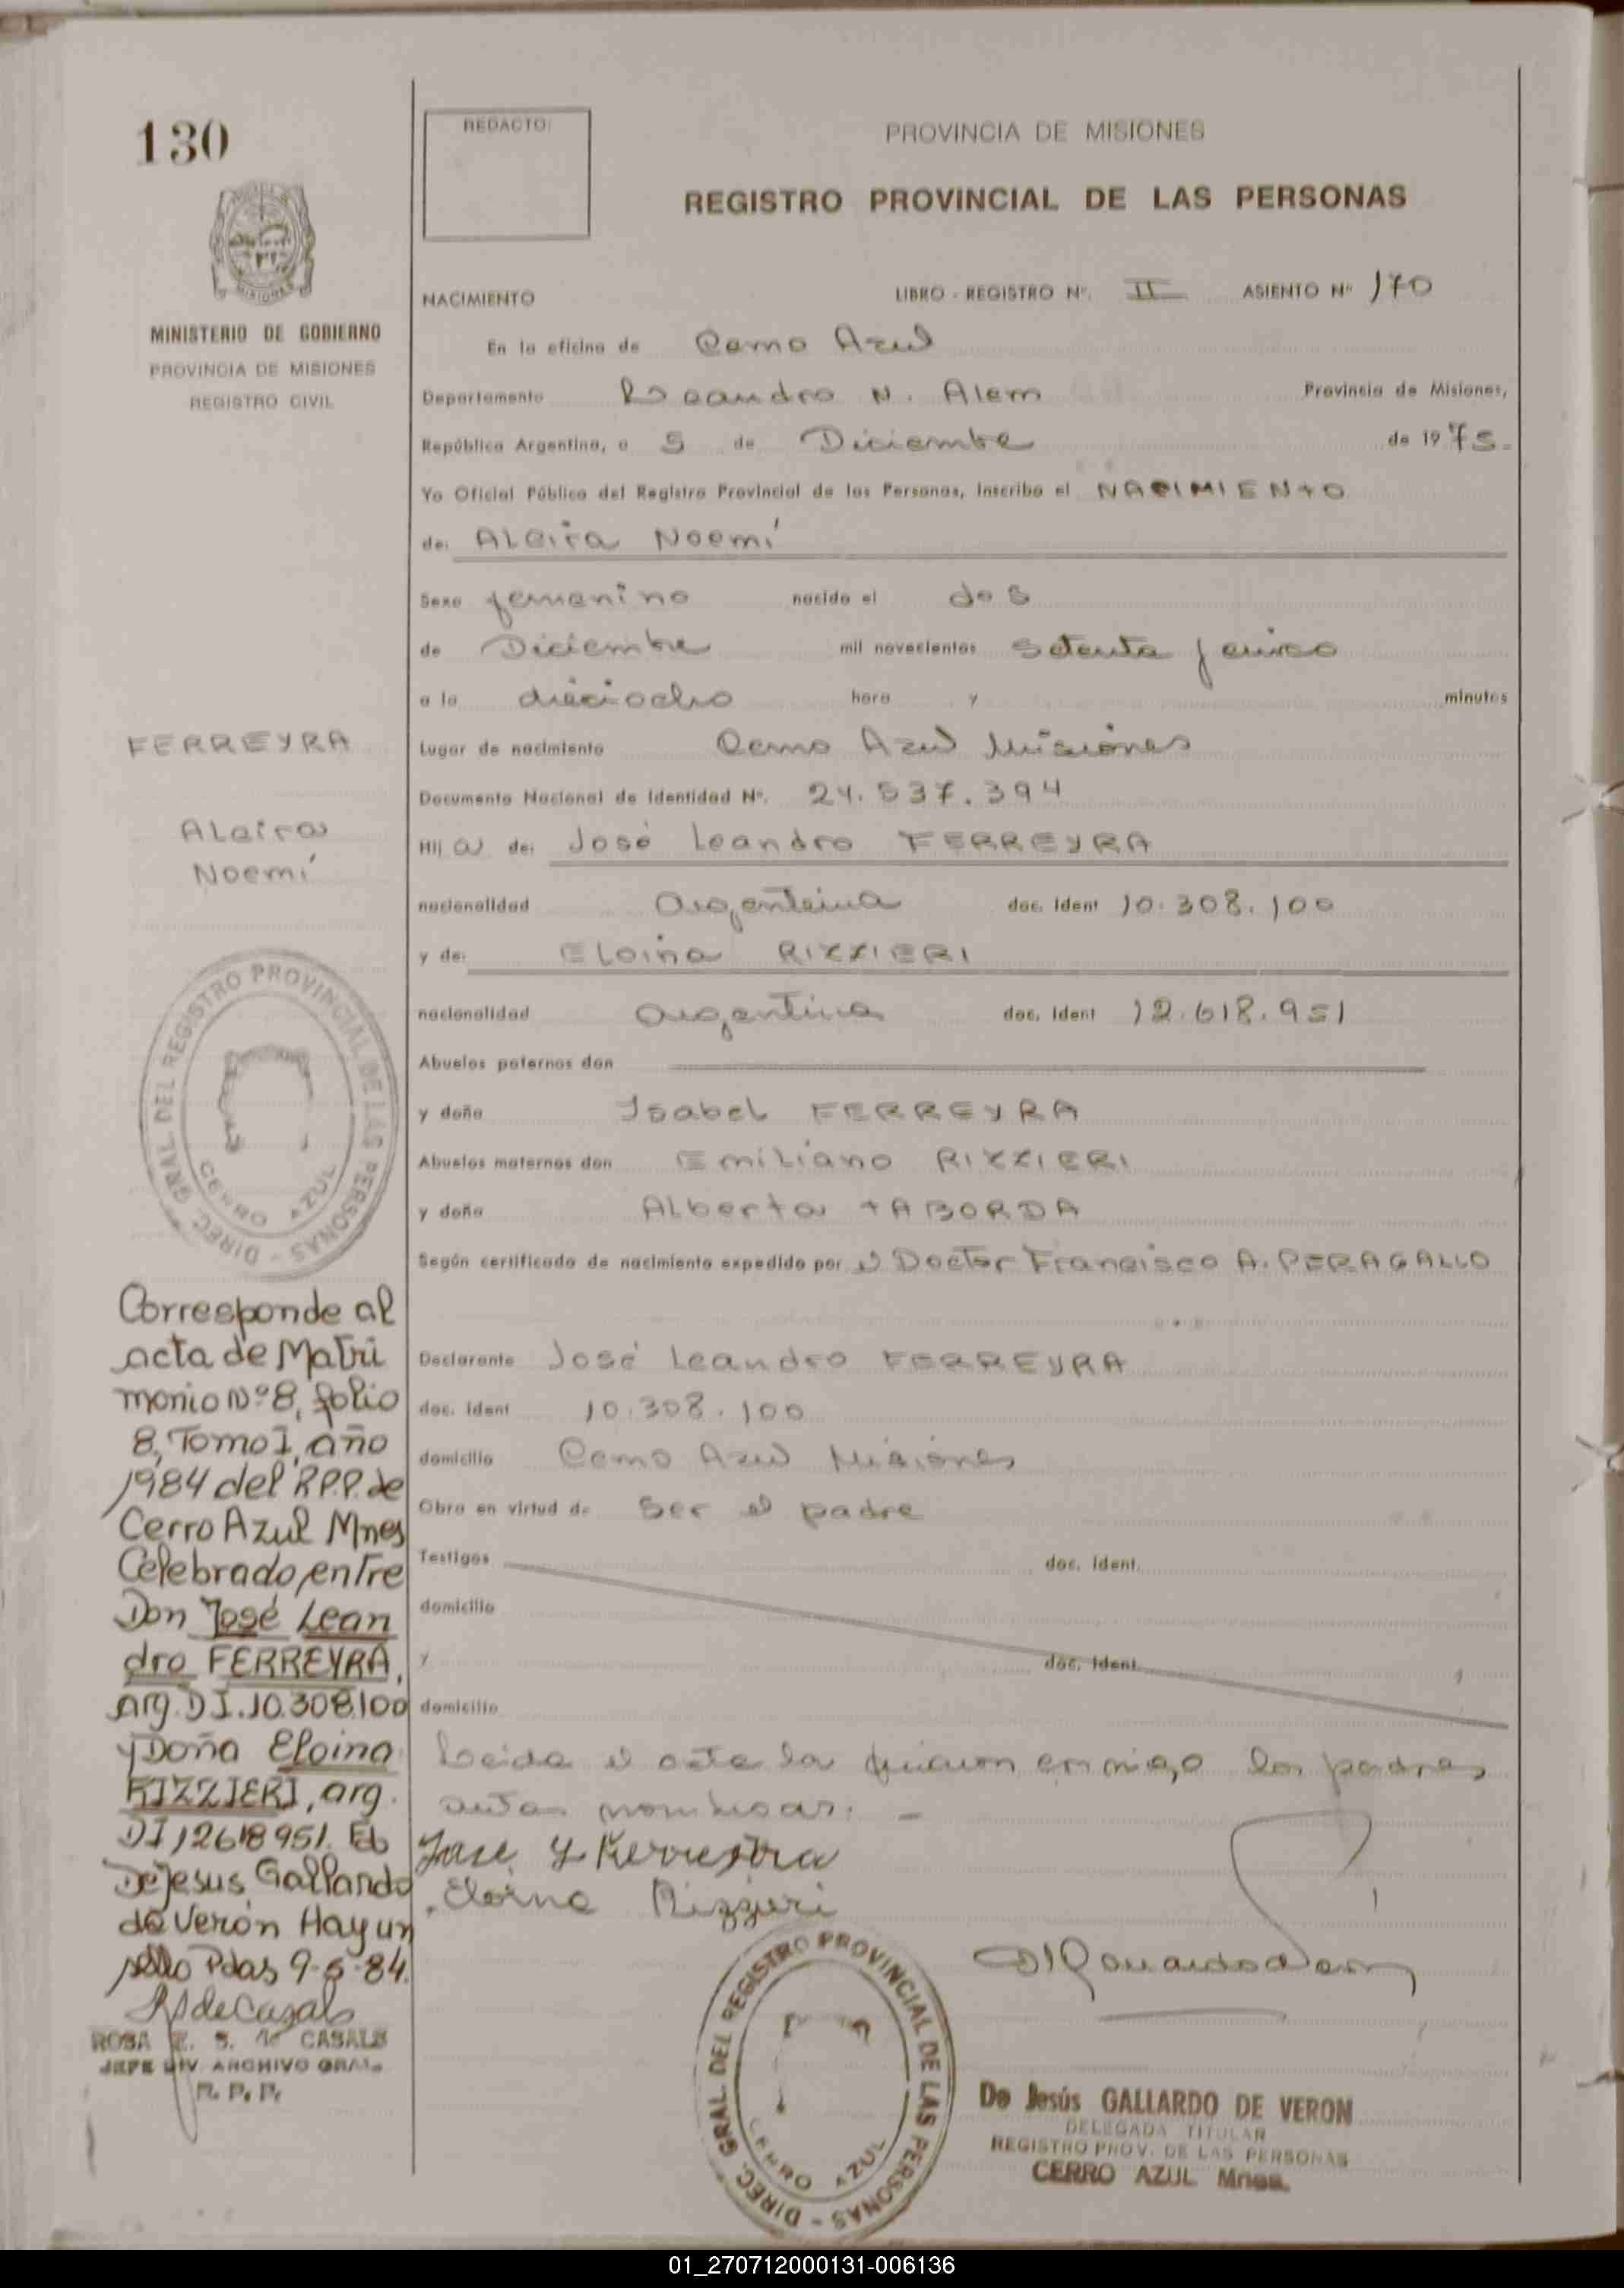 130
MISIONES
MINISTERIO DE GOBIERNO
PROVINCIA DE MISIONES
REGISTRO CIVIL
REDACTO:
PROVINCIA DE MISIONES
REGISTRO PROVINCIAL DE LAS PERSONAS
NACIMIENTO LIBRO - REGISTRO Nº. II ASIENTO Nº 170
En la oficina de Cerro Azul
Departamento Leandro N. Alem Provincia de Misiones,
República Argentina, a 5 de Diciembre de 1975.
Yo Oficial Público del Registro Provincial de las Personas, inscribo el NACIMIENTO
de: Alcira Noemí
Sexo femenino nacido el dos
de Diciembre mil novecientos setenta y cinco
a la dieciocho hora y minutos
Lugar de nacimiento Cerro Azul Misiones
Documento Nacional de Identidad Nº. 24.537.394
Hij a de: José Leandro FERREYRA
nacionalidad Argentina doc. ident 10.308.100
y de: Eloina RIZZIERI
nacionalidad Argentina doc. ident 12.618.951
Abuelos paternos don
y doña Isabel FERREYRA
Abuelos maternos don Emiliano RIZZIERI
y doña Alberta TABORDA
Según certificado de nacimiento expedido por el Doctor Francisco A. PERAGALLO
Declarante José Leandro FERREYRA
doc. ident 10.308.100
domicilio Cerro Azul Misiones
Obra en virtud de ser el padre
Testigos doc. ident.
domicilio
y doc. ident.
domicilio
Leida el acta la firman conmigo los padres
antes nombrados. -
José L Ferreyra
Eloina Rizzieri
DIREC. GRAL DEL REGISTRO PROVINCIAL DE LAS PERSONAS -
CERRO AZUL
De Jesús GALLARDO DE VERON
DELEGADA TITULAR
REGISTRO PROV. DE LAS PERSONAS
CERRO AZUL Mnes.
FERREYRA
Alcira
Noemí
DIREC. GRAL DEL REGISTRO PROVINCIAL DE LAS PERSONAS -
CERRO AZUL
Corresponde al
acta de Matri
monio Nº 8, folio
8, Tomo I, año
1984 del R.P.P. de
Cerro Azul Mnes
Celebrado entre
Don José Lean
dro FERREYRA,
arg. D I. 10.308.100
y Doña Eloina
RIZZIERI, arg.
DI 12618951. Fdo
De Jesus Gallardo
de Verón Hay un
sello Pdas 9-5-84.
ROSA E. S. de CASALS
JEFE DIV ARCHIVO GRAL.
R. P. P.
01_270712000131-006136